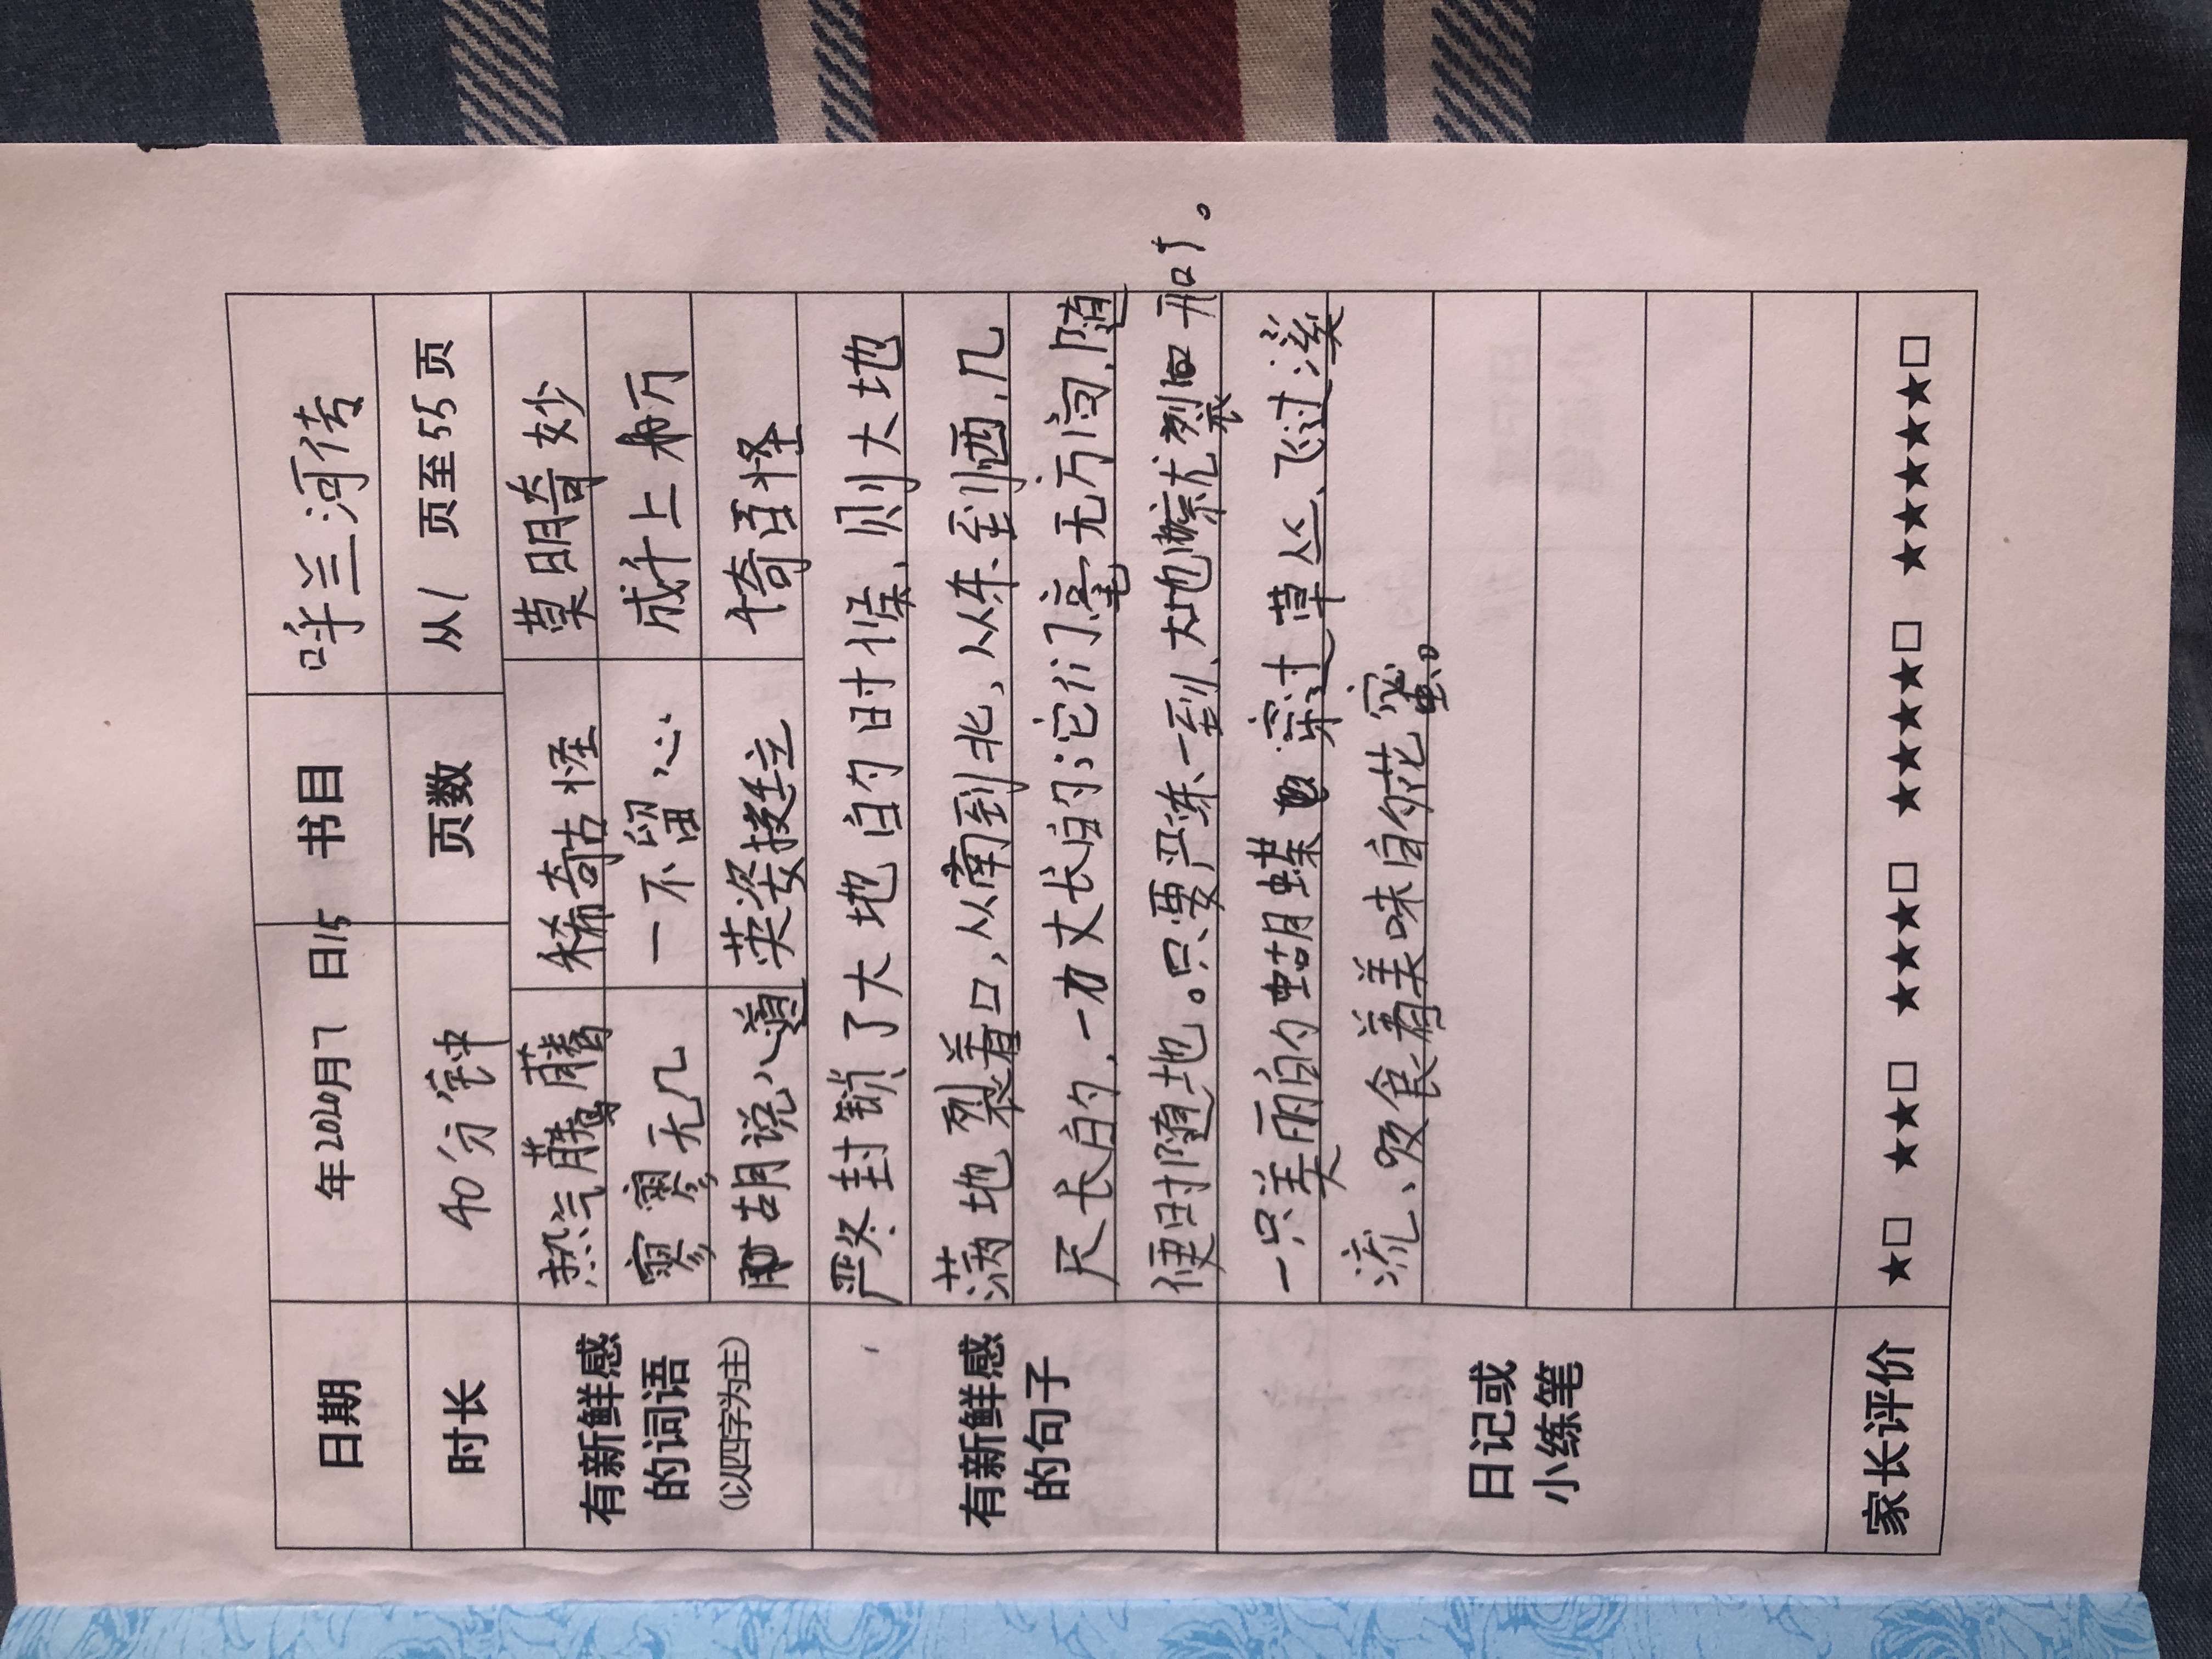 日期 年2020月7 日15 书目 呼兰河传
时长 40分钟 页数 从1 页至55页
有新鲜感的词语(以四字为主) 热汽腾腾 稀奇古怪 莫明奇妙
寥寥无几 一不留心 成千上万
胡说八道 英姿挺立 千奇百怪
有新鲜感的句子
严冬封锁了大地的时候、则大地
满地裂着口,从南到北、从东到西,几
尺长的,一丈长的;它们毫无方向,随
便时随地。只要严练一到、大地就裂口开口。
日记或小练笔
一只美丽的蝴蝶 穿过草丛、飞过溪
流、吸食着美味的花蜜。
家长评价 ★□ ★★□ ★★★□ ★★★★□ ★★★★★□